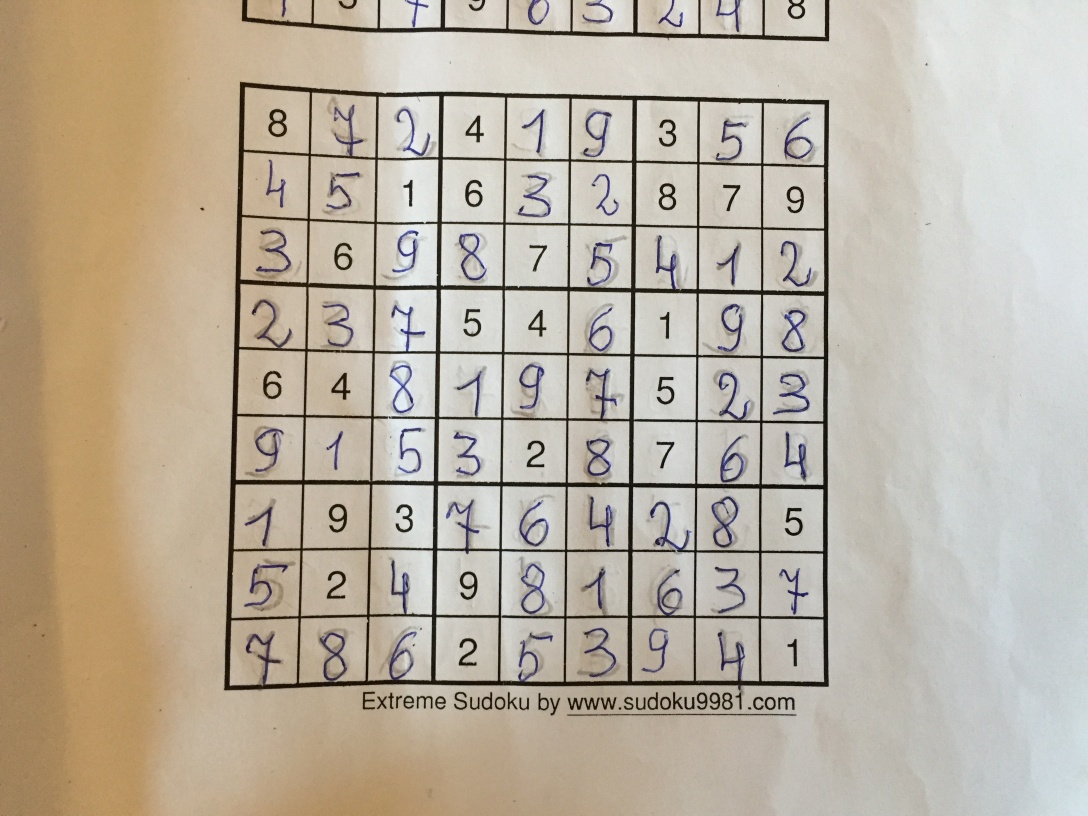 1 5 7 9 6 3 2 4 8
8 7 2 4 1 9 3 5 6
4 5 1 6 3 2 8 7 9
3 6 9 8 7 5 4 1 2
2 3 7 5 4 6 1 9 8
6 4 8 1 9 7 5 2 3
9 1 5 3 2 8 7 6 4
1 9 3 7 6 4 2 8 5
5 2 4 9 8 1 6 3 7
7 8 6 2 5 3 9 4 1
Extreme Sudoku by www.sudoku9981.com